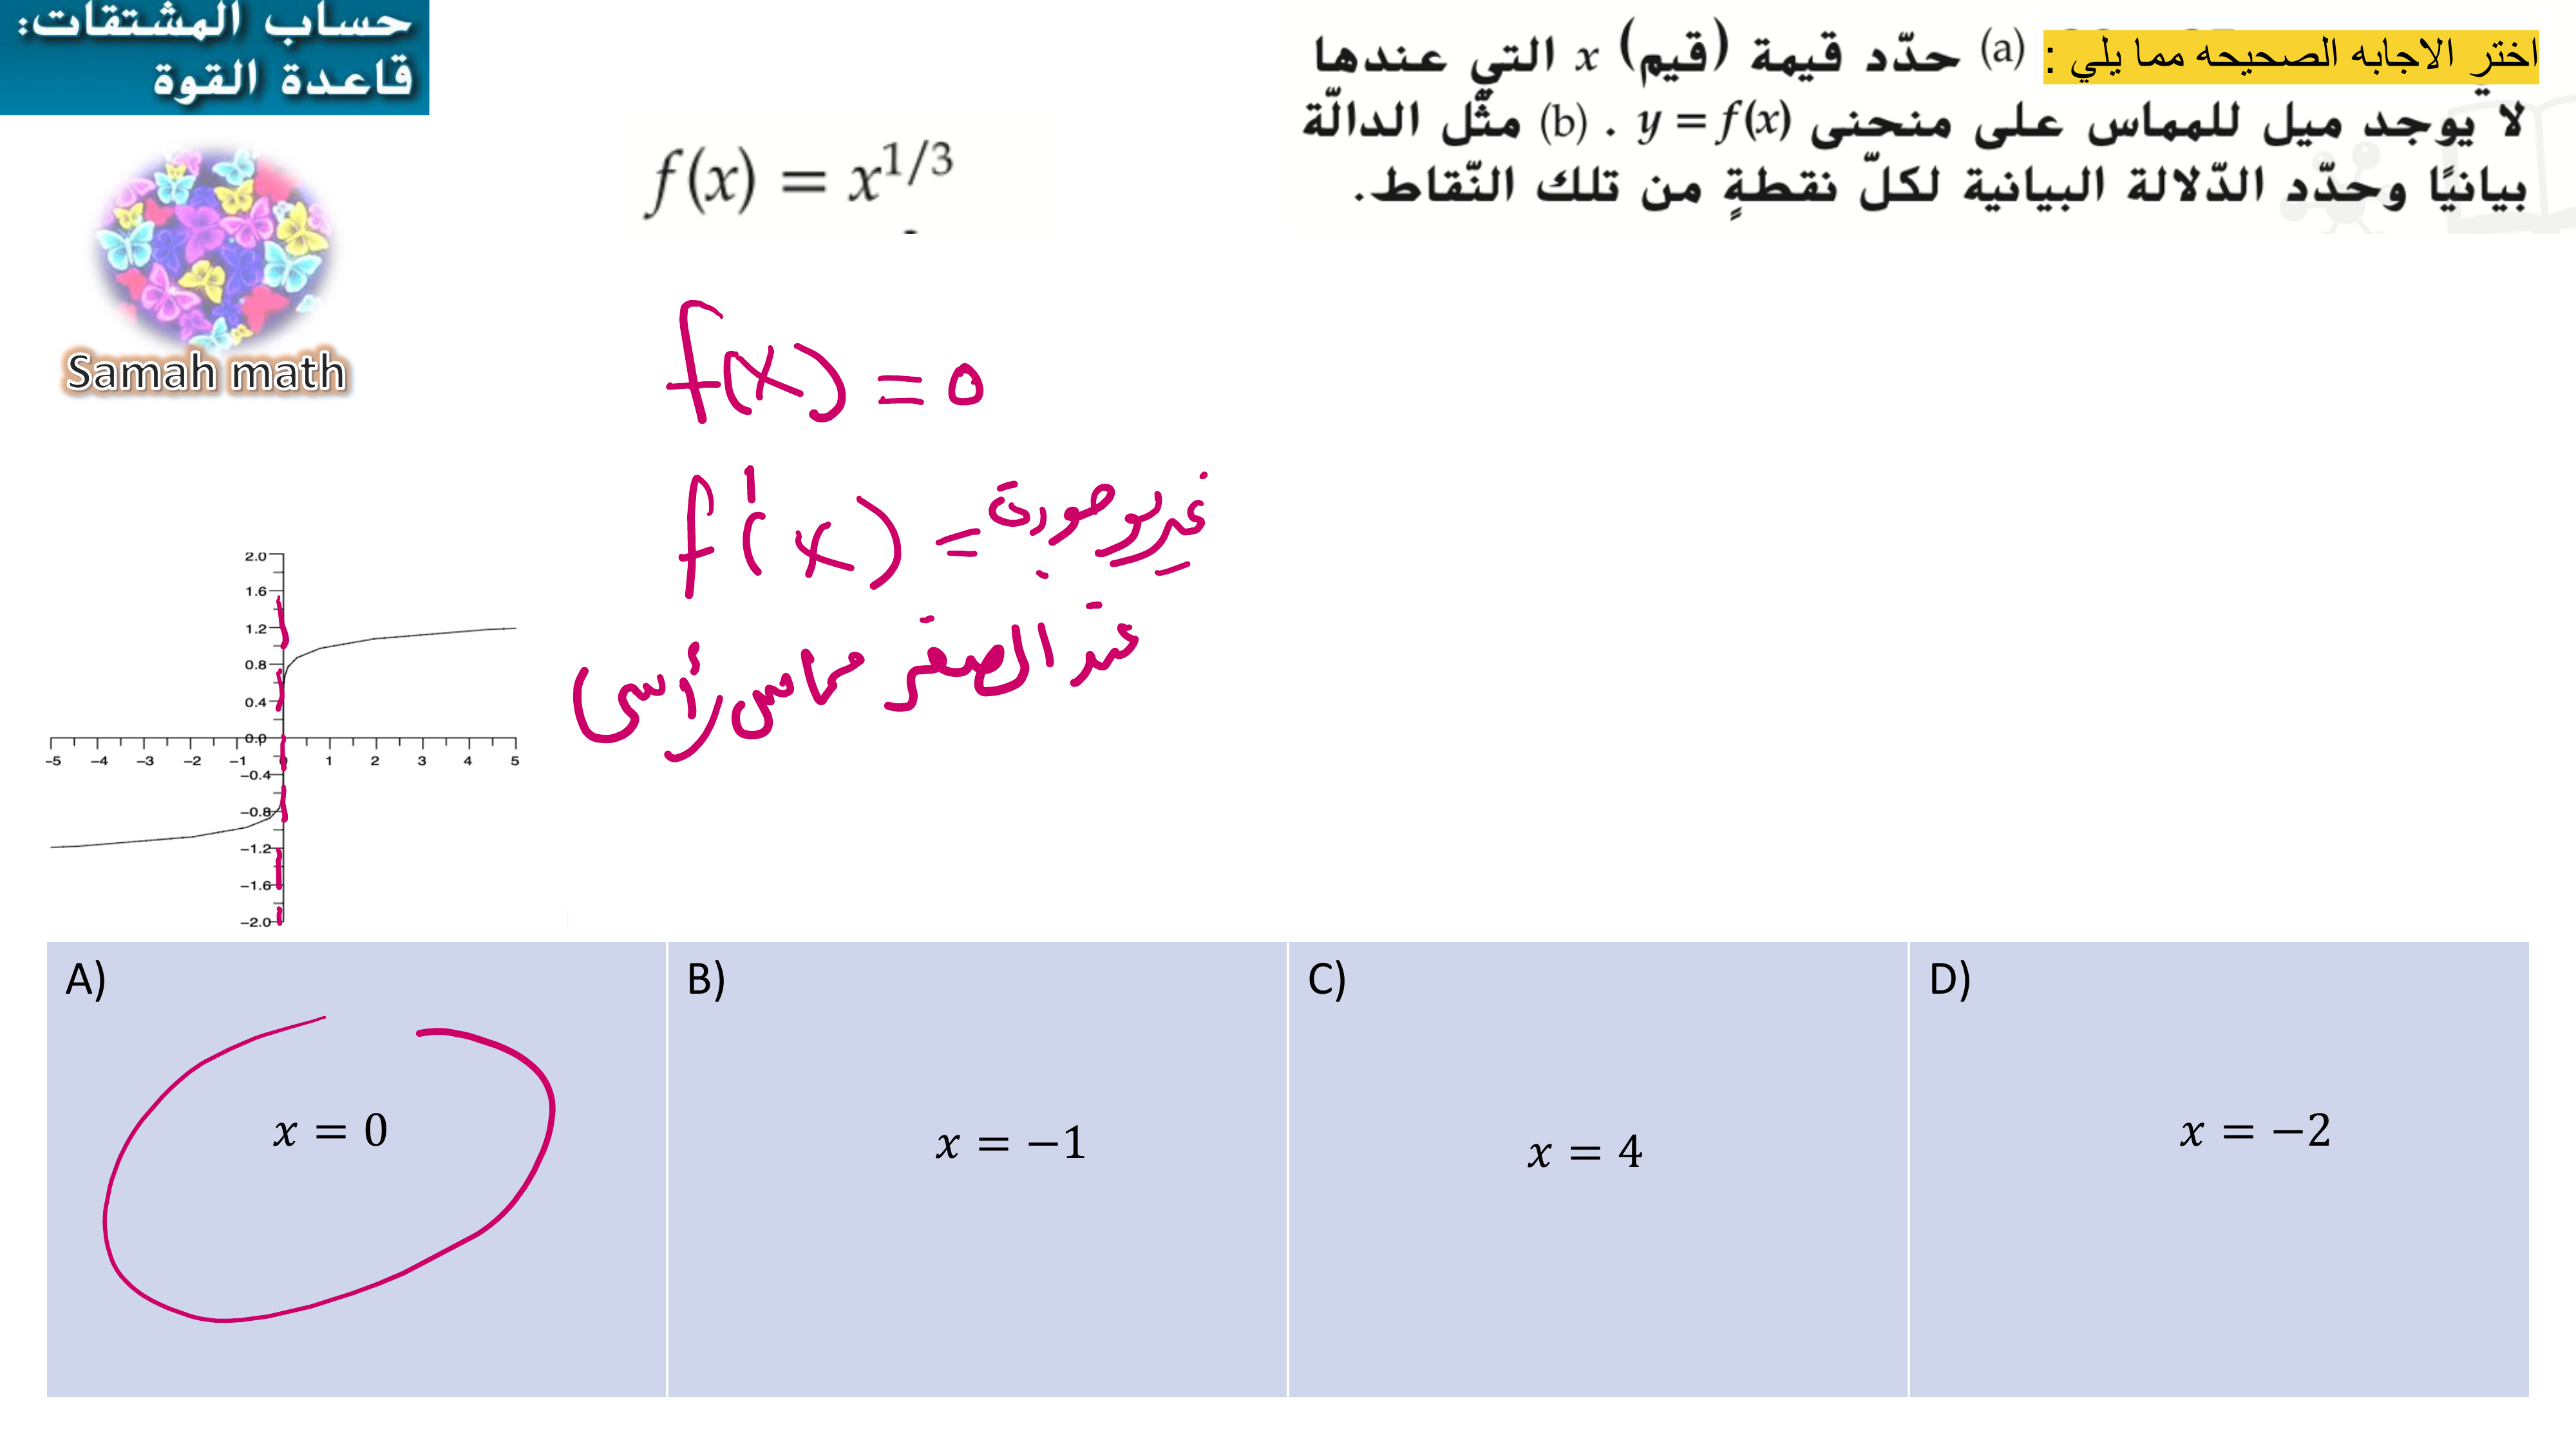 حساب المشتقات:
قاعدة القوة
Samah math
اختر الاجابه الصحيحه مما يلي :
(a) حدّد قيمة (قيم) x التي عندها
لا يوجد ميل للمماس على منحنى y = f(x) . (b) مثّل الدالّة
بيانيًا وحدّد الدّلالة البيانية لكلّ نقطةٍ من تلك النّقاط.
f(x) = x^{1/3}
f(x) = 0
f'(x) = غير موجودة
عند الصفر مماس رأسي
2.0
1.6
1.2
0.8
0.4
0.0
-5 -4 -3 -2 -1 0 1 2 3 4 5
-0.4
-0.8
-1.2
-1.6
-2.0
A)
x = 0
B)
x = −1
C)
x = 4
D)
x = −2